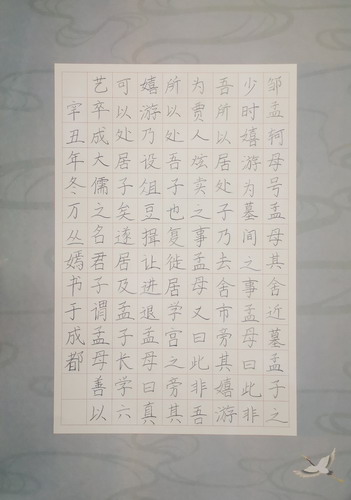 邹孟轲母号孟母其舍近墓孟子之
少时嬉游为墓间之事孟母曰此非
吾所以居处子乃去舍市旁其嬉游
为贾人炫卖之事孟母又曰此非吾
所以处吾子也复徙居学宫之旁其
嬉游乃设俎豆揖让进退孟母曰真
可以处居子矣遂居及孟子长学六
艺卒成大儒之名君子谓孟母善以
辛丑年冬万丛嫣书于成都